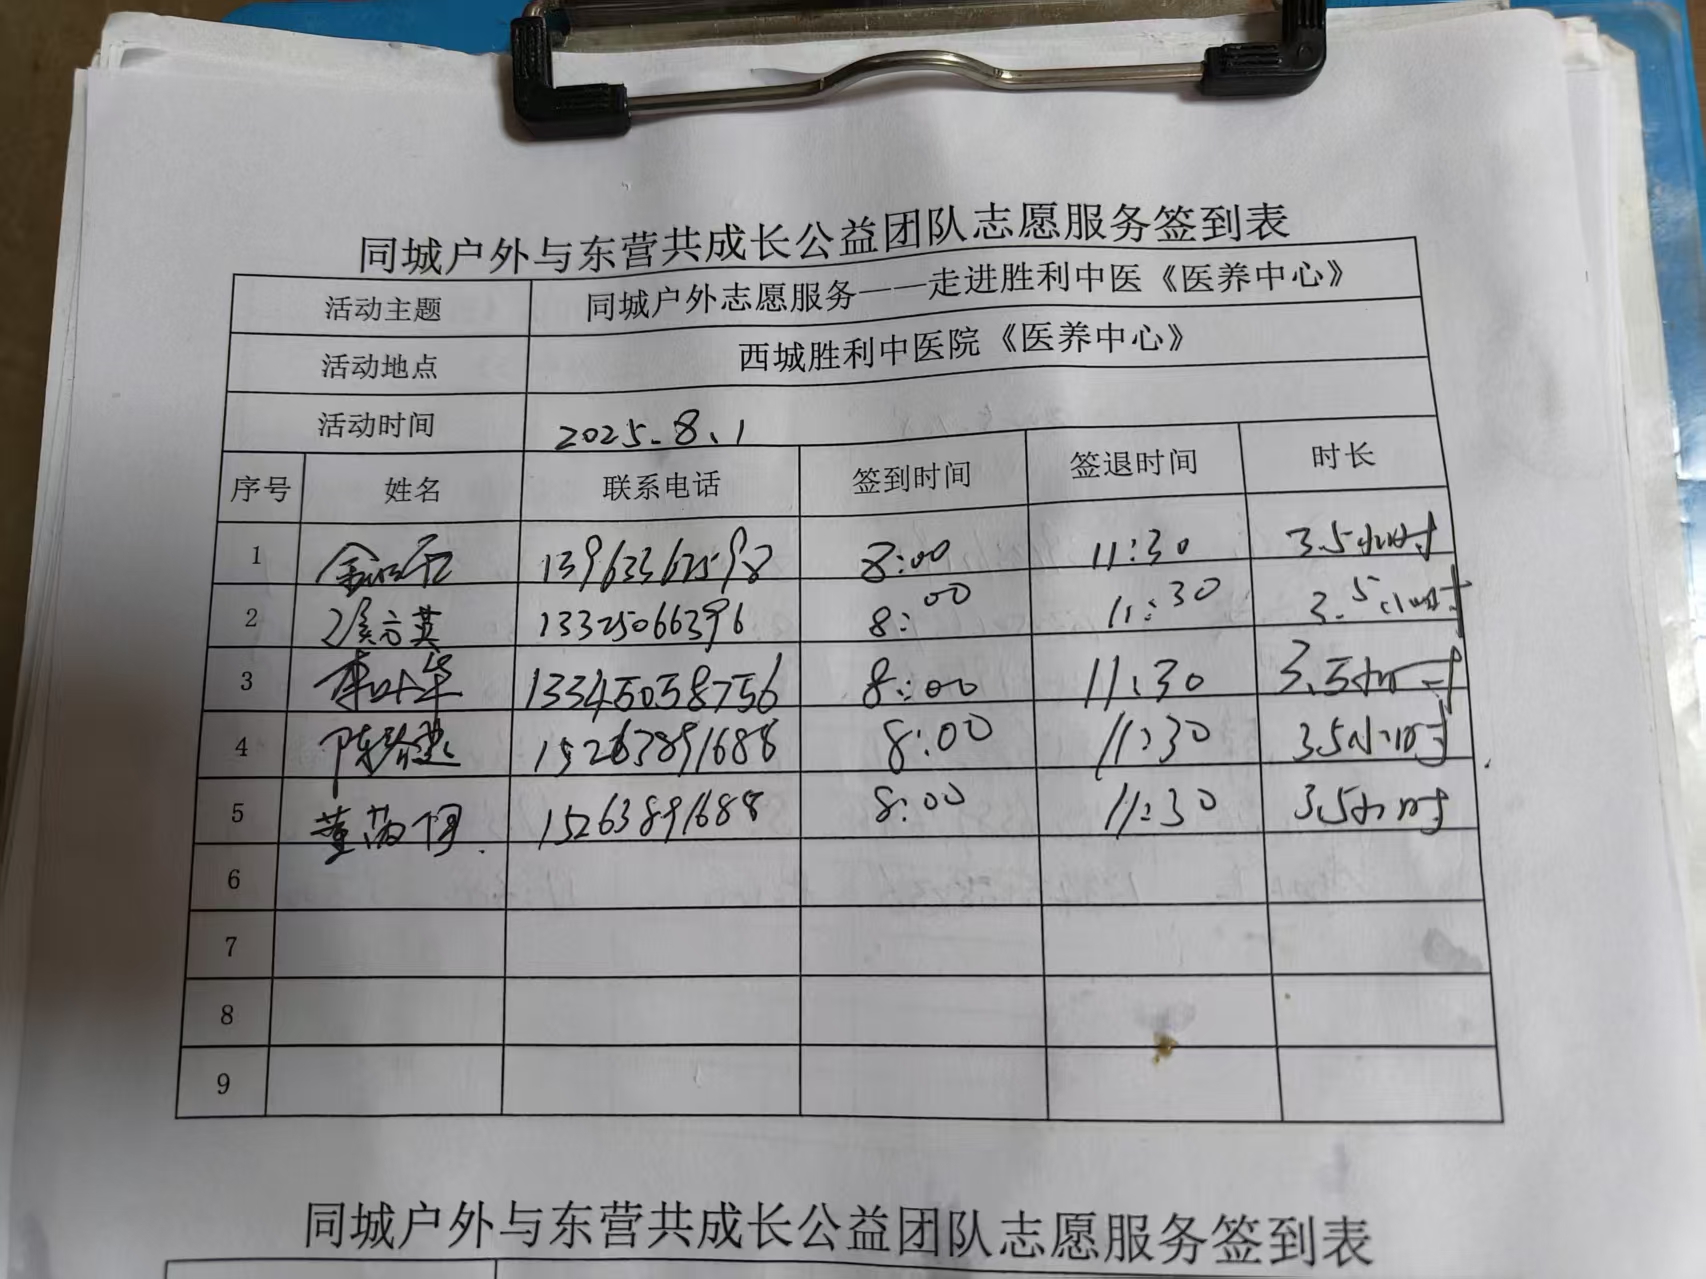 同城户外与东营共成长公益团队志愿服务签到表
活动主题 同城户外志愿服务——走进胜利中医《医养中心》
活动地点 西城胜利中医院《医养中心》
活动时间 2025.8.1
序号 姓名 联系电话 签到时间 签退时间 时长
1 13963367598 8:00 11:30 3.5小时
2 侯方英 13325066396 8:00 11:30 3.5小时
3 李叶华 13345058756 8:00 11:30 3.5小时
4 陈 15263891688 8:00 11:30 3.5小时
5 董 15263891688 8:00 11:30 3.5小时
6
7
8
9
同城户外与东营共成长公益团队志愿服务签到表